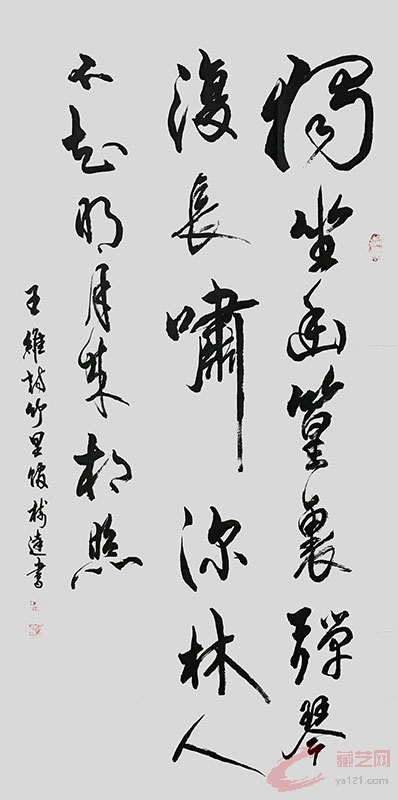 獨坐幽篁裏彈琴
復長嘯深林人
不知明月來相照
王維詩竹里館達書
藏艺网
ya121.com